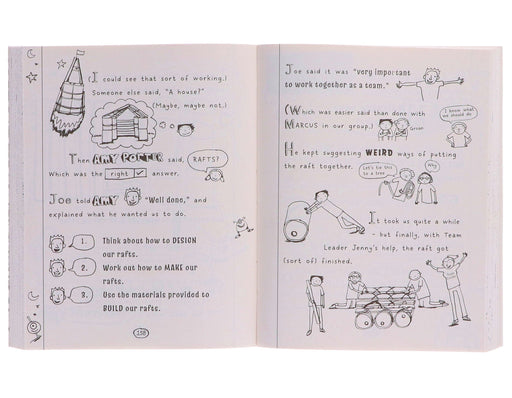 (I could see that sort of working.)
Someone else said, "A house?"
(Maybe, maybe not.)
Then AMY PORTER said,
RAFTS?
Which was the right ✓ answer.
Joe told AMY "Well done," and
explained what he wanted us to do.
1. Think about how to DESIGN
our rafts.
2. Work out how to MAKE our
rafts.
3. Use the materials provided to
BUILD our rafts.
158
Joe said it was "very important
to work together as a team."
(Which was easier said than done with
MARCUS in our group.)
Groan
I know what
we should do
He kept suggesting WEIRD ways of putting
the raft together.
Let's tie this
to a tree
Why
It took us quite a while
- but finally, with Team
Leader Jenny's help, the raft got
(sort of) finished.